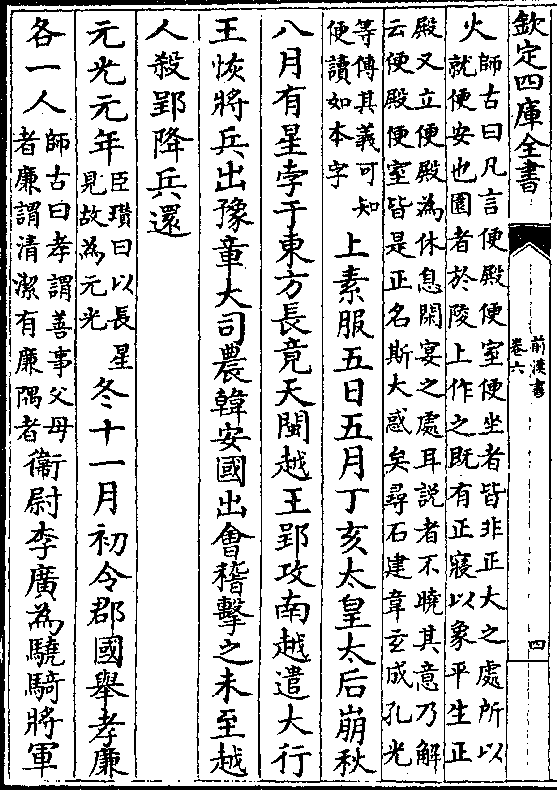 欽定四庫全書
前漢書
卷六
四
火
師古曰凡言便殿便室便坐者皆非正大之處所以
就便安也園者於陵上作之既有正寢以象平生正
殿又立便殿為休息閑宴之處耳説者不曉其意乃解
云便殿便室皆是正名斯大惑矣尋石建韋玄成孔光
等傳其義可知
便讀如本字
上素服五日五月丁亥太皇太后崩秋
八月有星孛于東方長竟天閩越王郢攻南越遣大行
王恢將兵出豫章大司農韓安國出會稽擊之未至越
人殺郢降兵還
元光元年
臣瓚曰以長星
見故為元光
冬十一月初令郡國舉孝廉
各一人
師古曰孝謂善事父母
者廉謂清潔有廉隅者
衛尉李廣為驍騎將軍